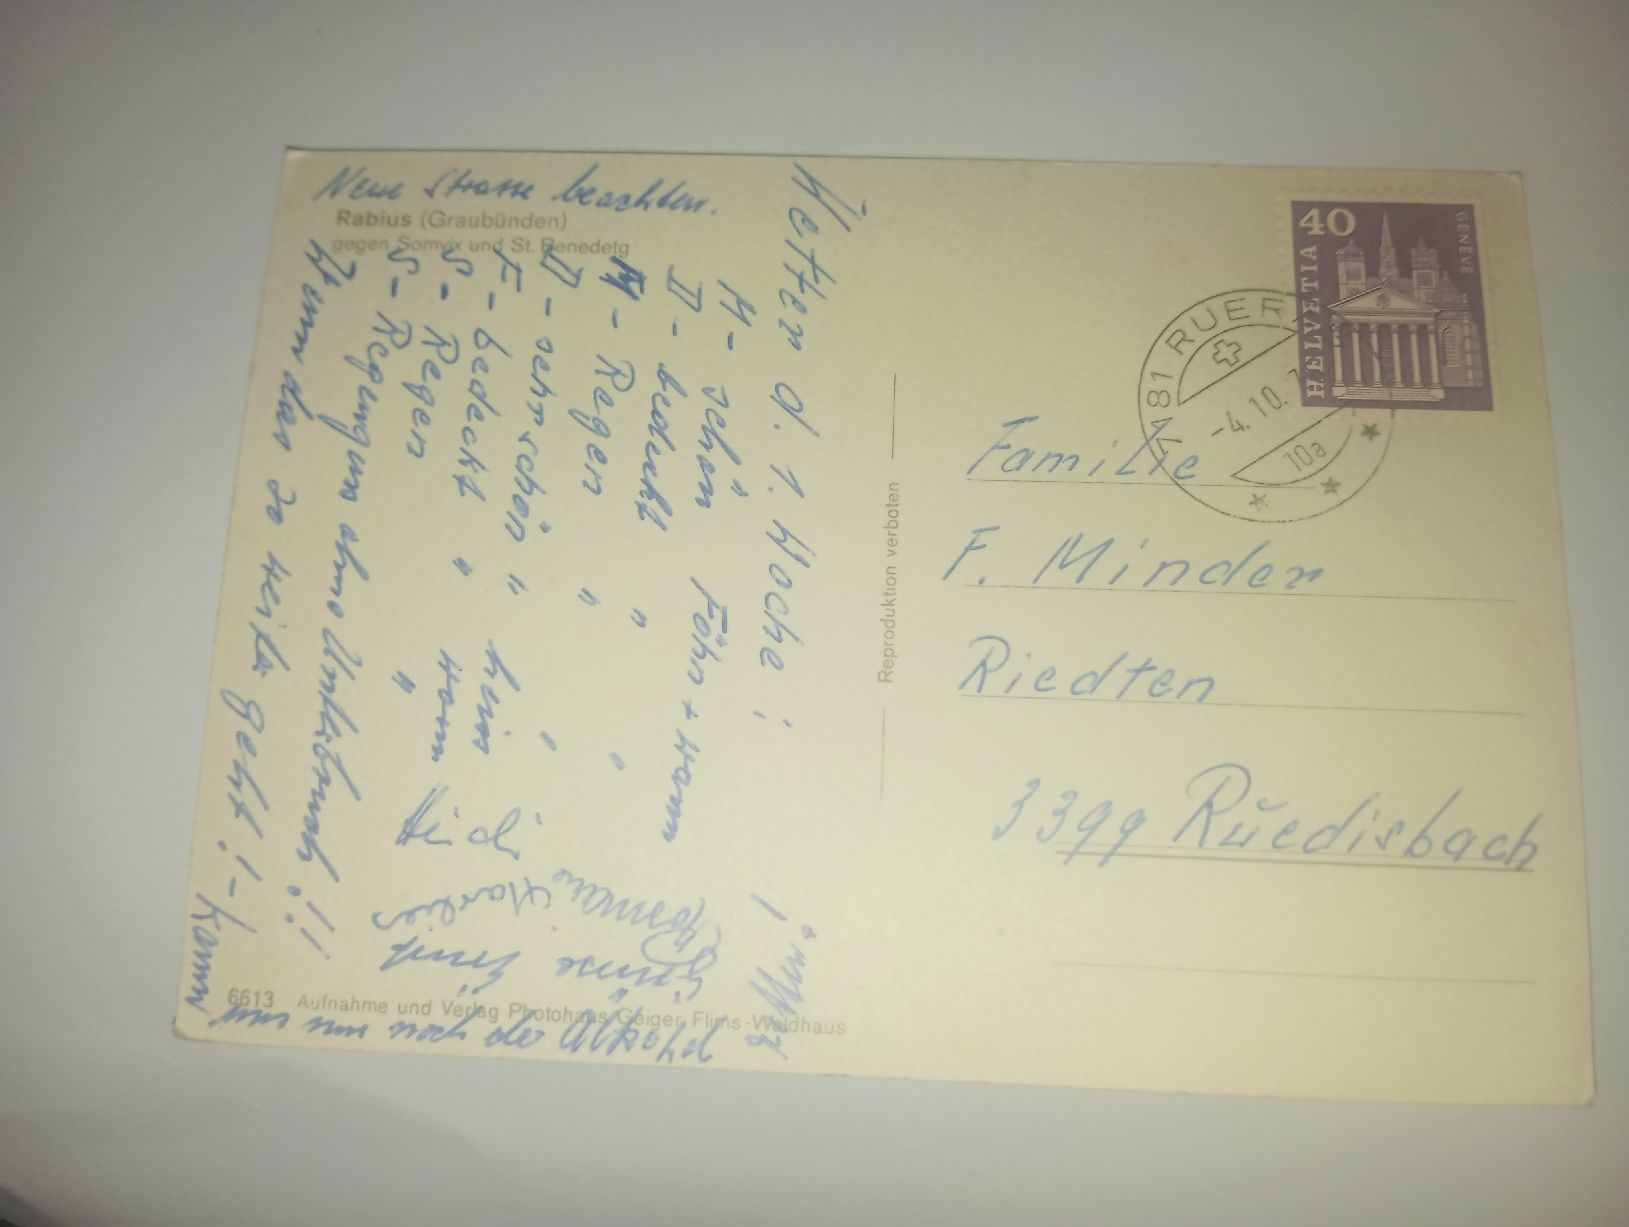 Neue Strasse beachten.
Rabius (Graubünden)
gegen Somvix und St. Benedetg
Wetter d. 1. Woche:
M - schön Föhn + warm
D - bedeckt " "
M - Regen " "
D - sehr schön "
F - bedeckt " heiss
S - Regen warm
S - Regen "
Regenguss ohne Unterbruch!!
Wenn das so weiter geht! - kann
man nur noch
Grüsse
Reproduktion verboten
6613 Aufnahme und Verlag Photohaus Geiger, Flims-Waldhaus
40
HELVETIA
GENÈVE
7181 RUE
-4.10.
10a
Familie
F. Minder
Riedten
3399 Rüedisbach